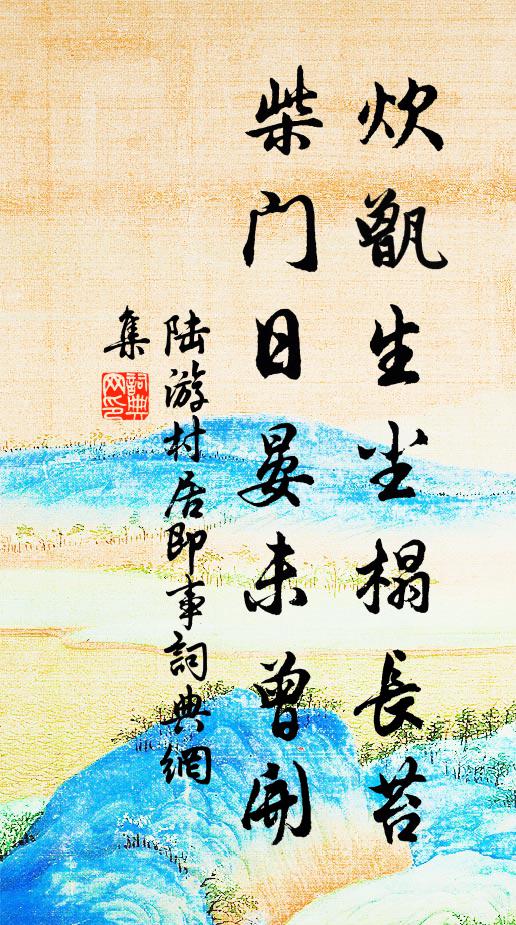 炊甑生尘榻長苔
柴门日晏未曾開
陆游村居即事詞典網
集
詞典
网印